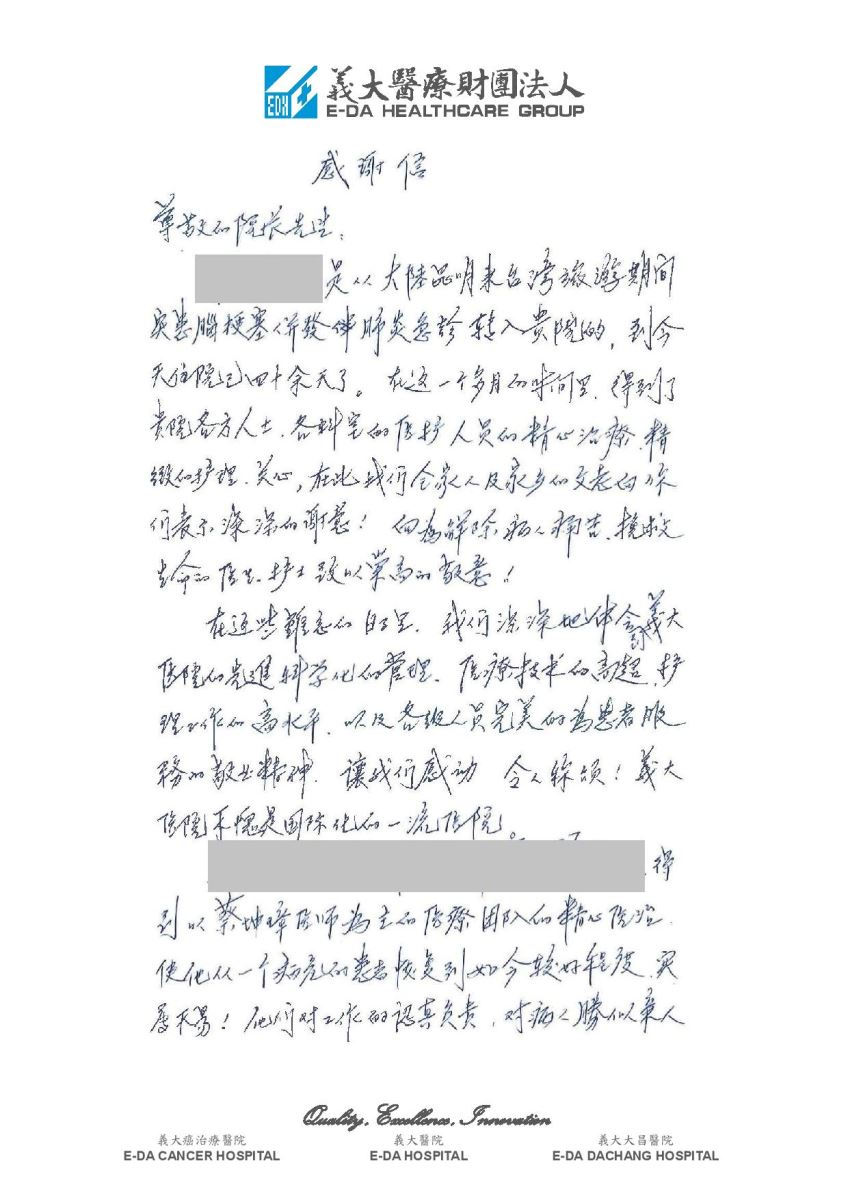 EDH
義大醫療財團法人
E-DA HEALTHCARE GROUP
感謝信
尊敬的院长先生:
是从大陸昆明来台灣旅遊期間
突患腦梗塞併發伴肺炎急診轉入貴院的,到今
天住院已四十余天了。在这一个多月的时间里,得到了
貴院各方人士、各科室的医护人员的精心治療、精
緻的护理、关心,在此我们全家人及家乡的父老向你
们表示深深的谢意!向為解除病人痛苦、挽救
生命的医生、护士致以崇高的敬意!
在这些難忘的日子里,我们深深地体会到義大
医院的先進科学化的管理、医療技术的高超、护
理工作的高水平,以及各级人员完美的為患者服
務的敬业精神,讓我们感动,令人称颂!義大
医院不愧是国际化的一流医院。
得
到以蔡坤璋医师為主的医療团队的精心医治,
使他从一个病危的患者恢复到如今较好程度,实
属不易!他们对工作的認真负责,对病人勝似亲人
Quality, Excellence, Innovation
義大癌治療醫院 義大醫院 義大大昌醫院
E-DA CANCER HOSPITAL E-DA HOSPITAL E-DA DACHANG HOSPITAL